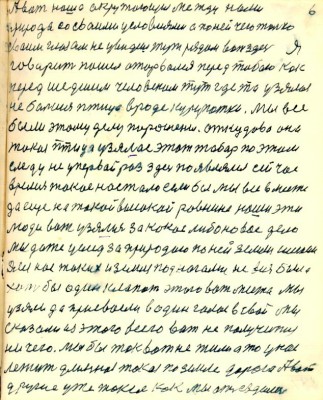 6
А вот наша окружающая между нами
природа со своими условиями а по ней чего только
своим глазам не увидиш тут рядом возле Я
говорит пошел оторвался перед тобою как
перед шедшим человеком тут где то узялась
не большая птица вроде куропатки. Мы все
были этому делу поражены. откудова она
такая птица узялас этот товар по этом
следу не упервой раз здес появлялся сейчас
время такое настало если бы мы все вместе
да еще на такой высокой равнине наши эти
люди вот узялися за какое либо новое дело
мы даже увслед за природою по ней земли
такая и земля под ногами не без была
хотя бы один клапот этого вот места Мы
узяли да присвоили в один голос в свой Мы
сказали из этого всего вот не получится
ничего. Мы бы так вот не жили а то у нас
лежит длиная такая по земле дорога А вот
другие уже также как мы от сюдаго